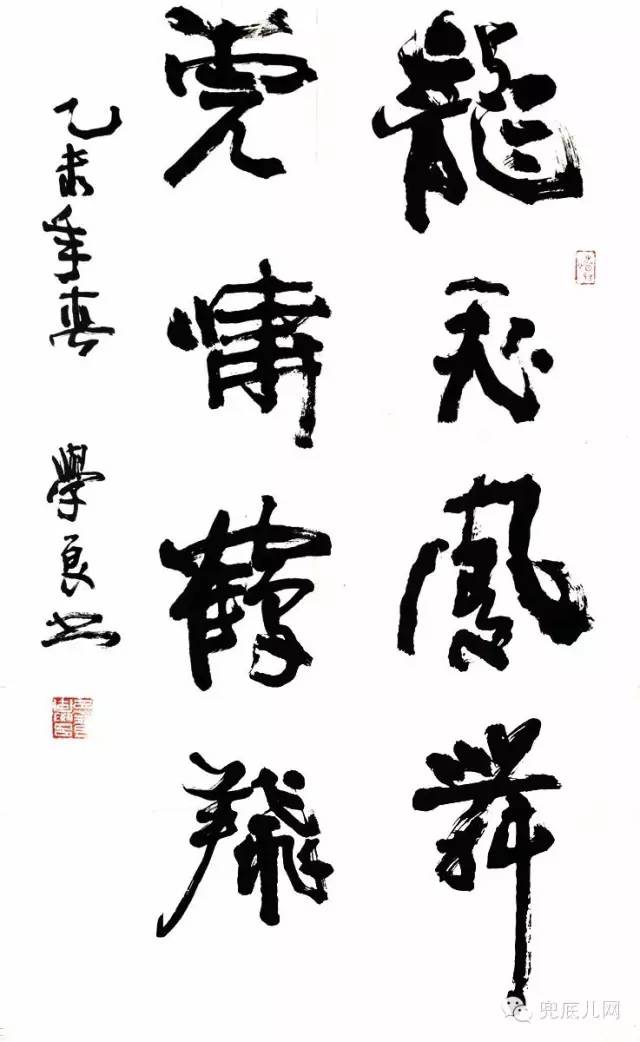 龍飛鳳舞
虎嘯鶴翔
乙未年春 學良书
兜底儿网